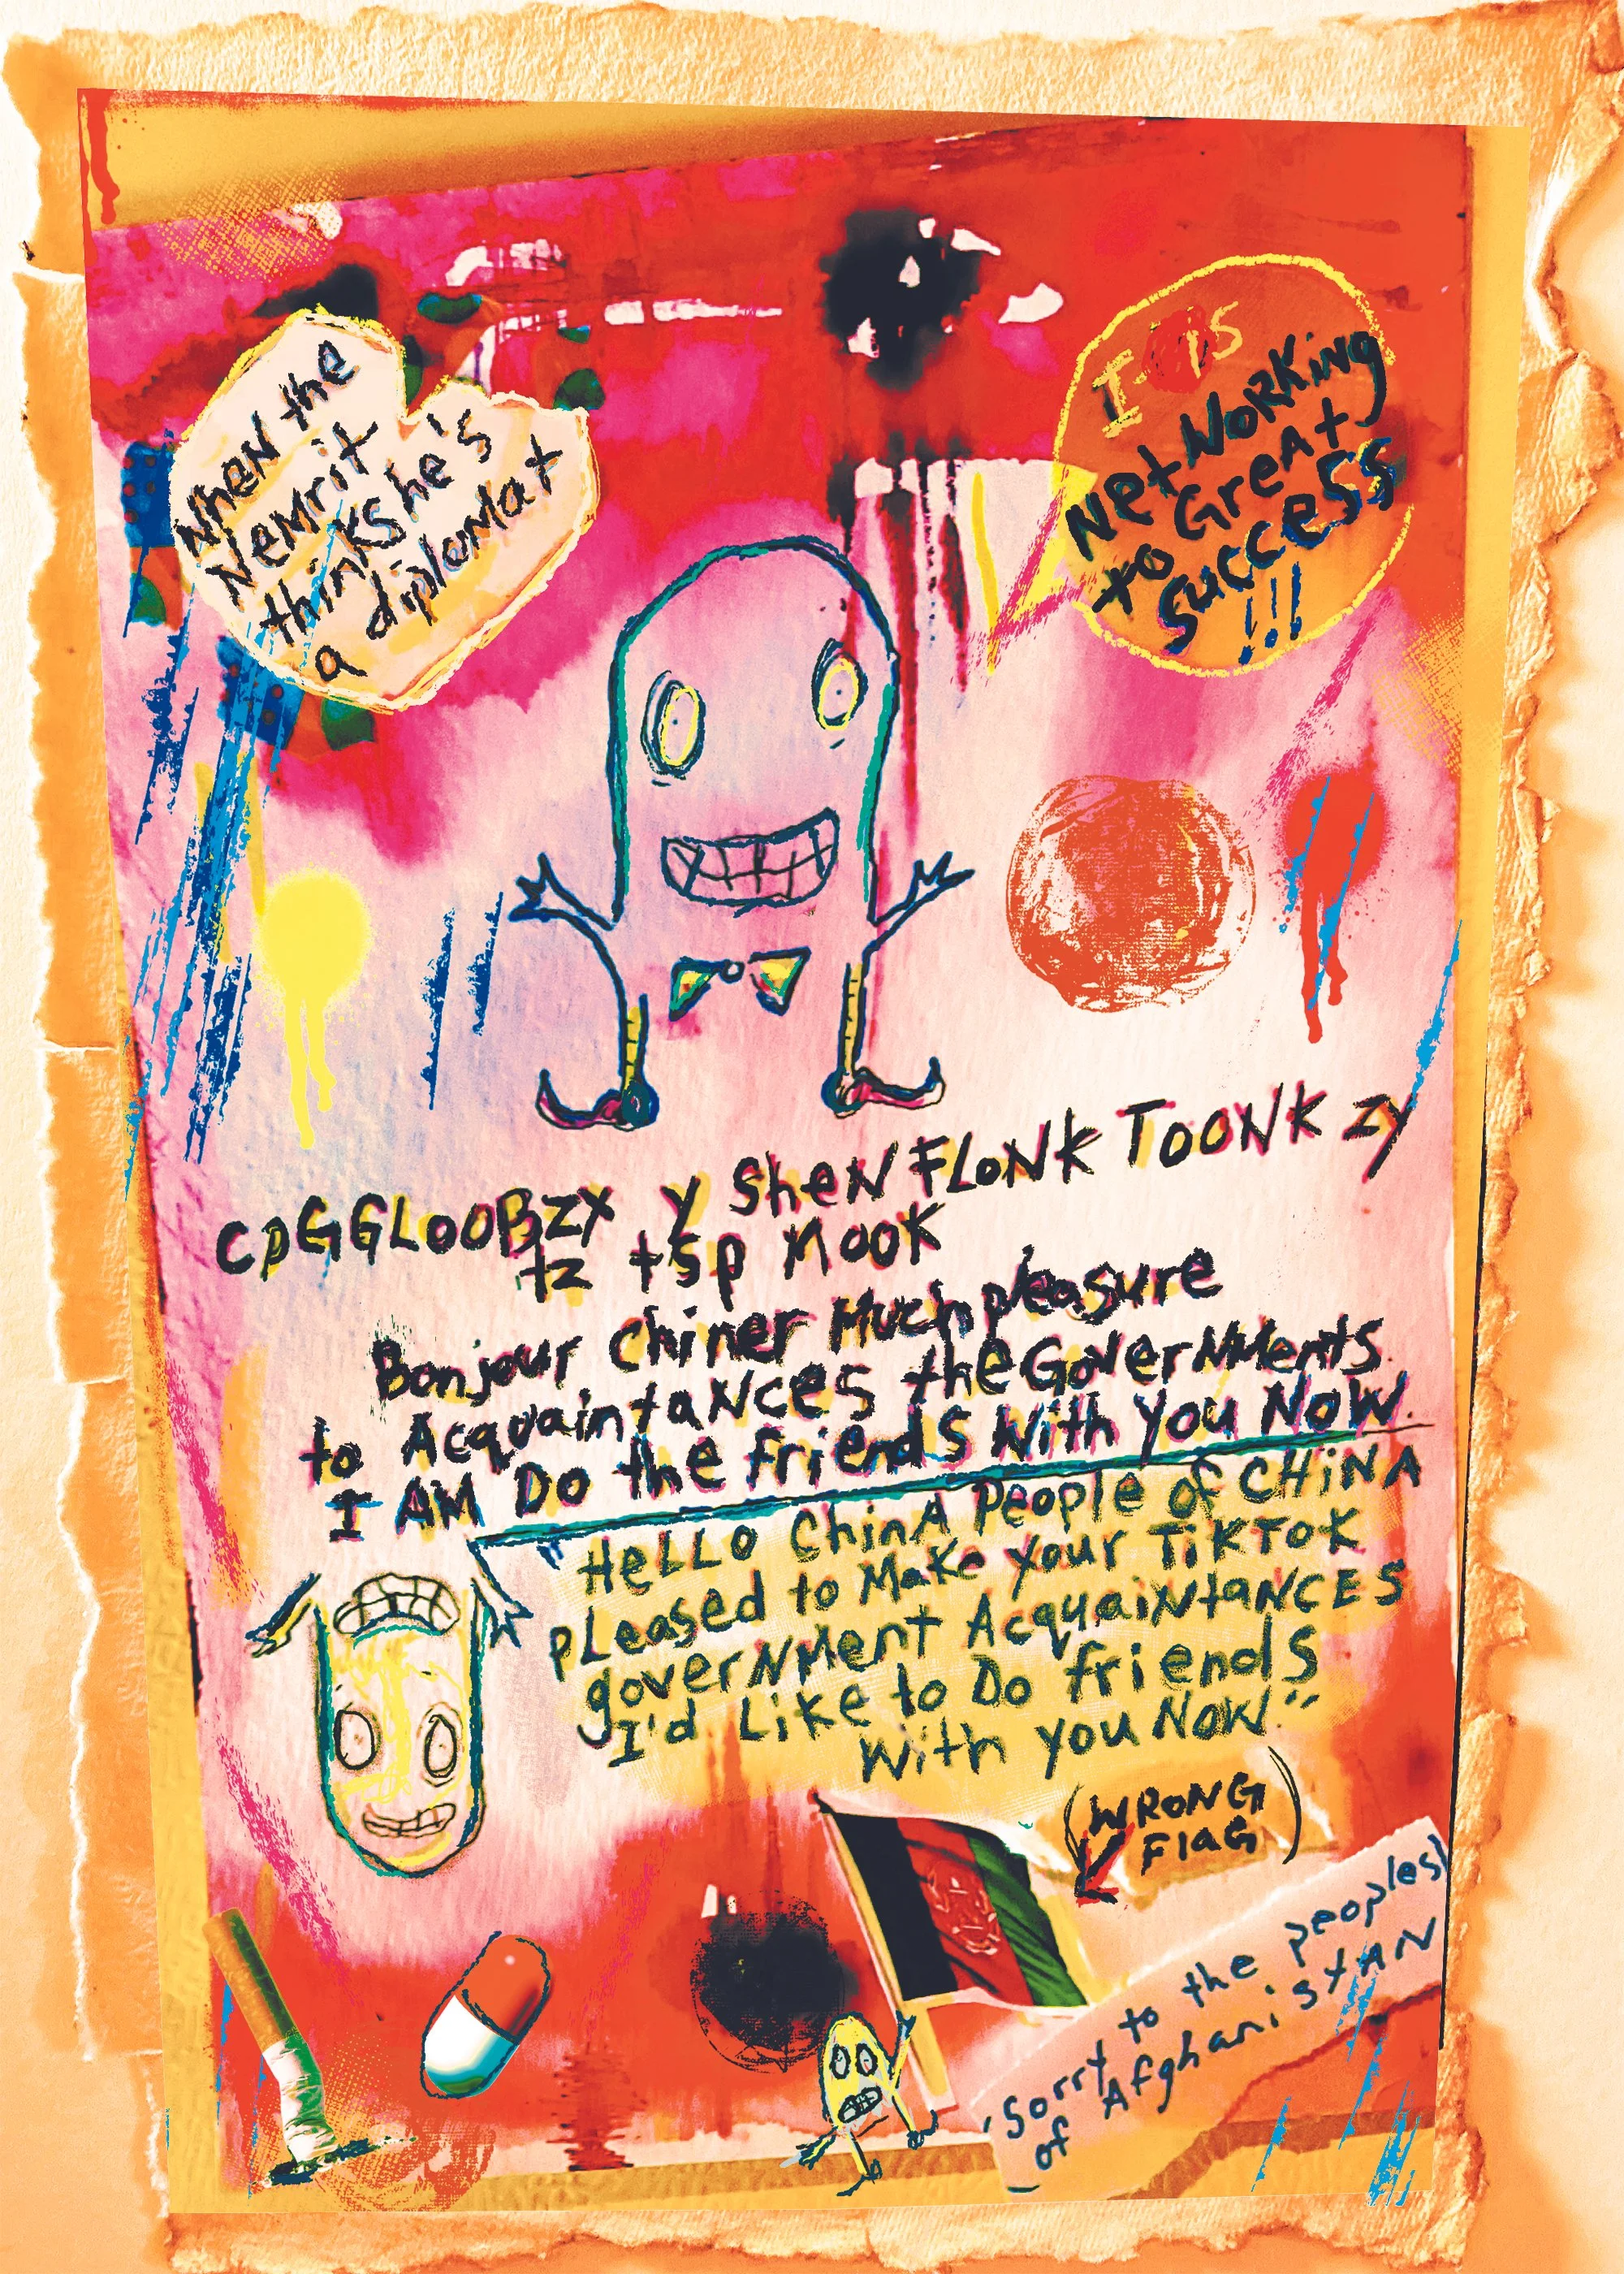 When the
Nemrit
thinks he's
a diplomat
I is
Networking
to Great
success
!!!
CPGGLOOBZX y SheN FLONK TOONK zy
tz tsp MOOK
Bonjour Chiner Much pleasure
to AcquaintaNces the GoverNMents.
I AM Do the friends With you Now.
"HeLLO ChinA People of CHiNA
pLeased to Make your TiKToK
goverNMent AcquaiNtaNCES
I'd Like to Do friends
With you Now."
(WRONG
FlaG)
'Sorry to the peoples)
of AfghanisTAN